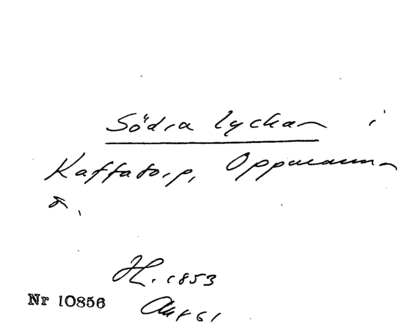 Södra lyckan i
Kaffatorp, Oppmanna
H. 1853
Nr 10856
Akt 61